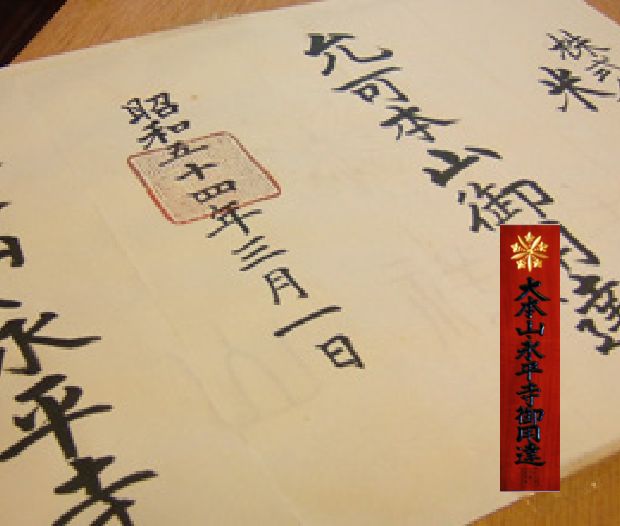 株式
米
允可本山御用達
昭和五十四年三月一日
山永平寺
大本山永平寺御用達